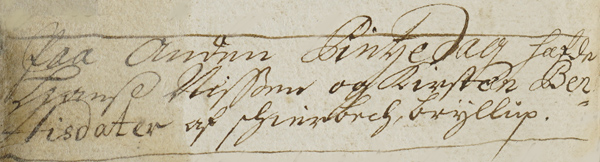 Paa Anden Pintze Dag hafde
Hans Nissen og Kirsten Ber-
tisdater af schierbech, bryllup.